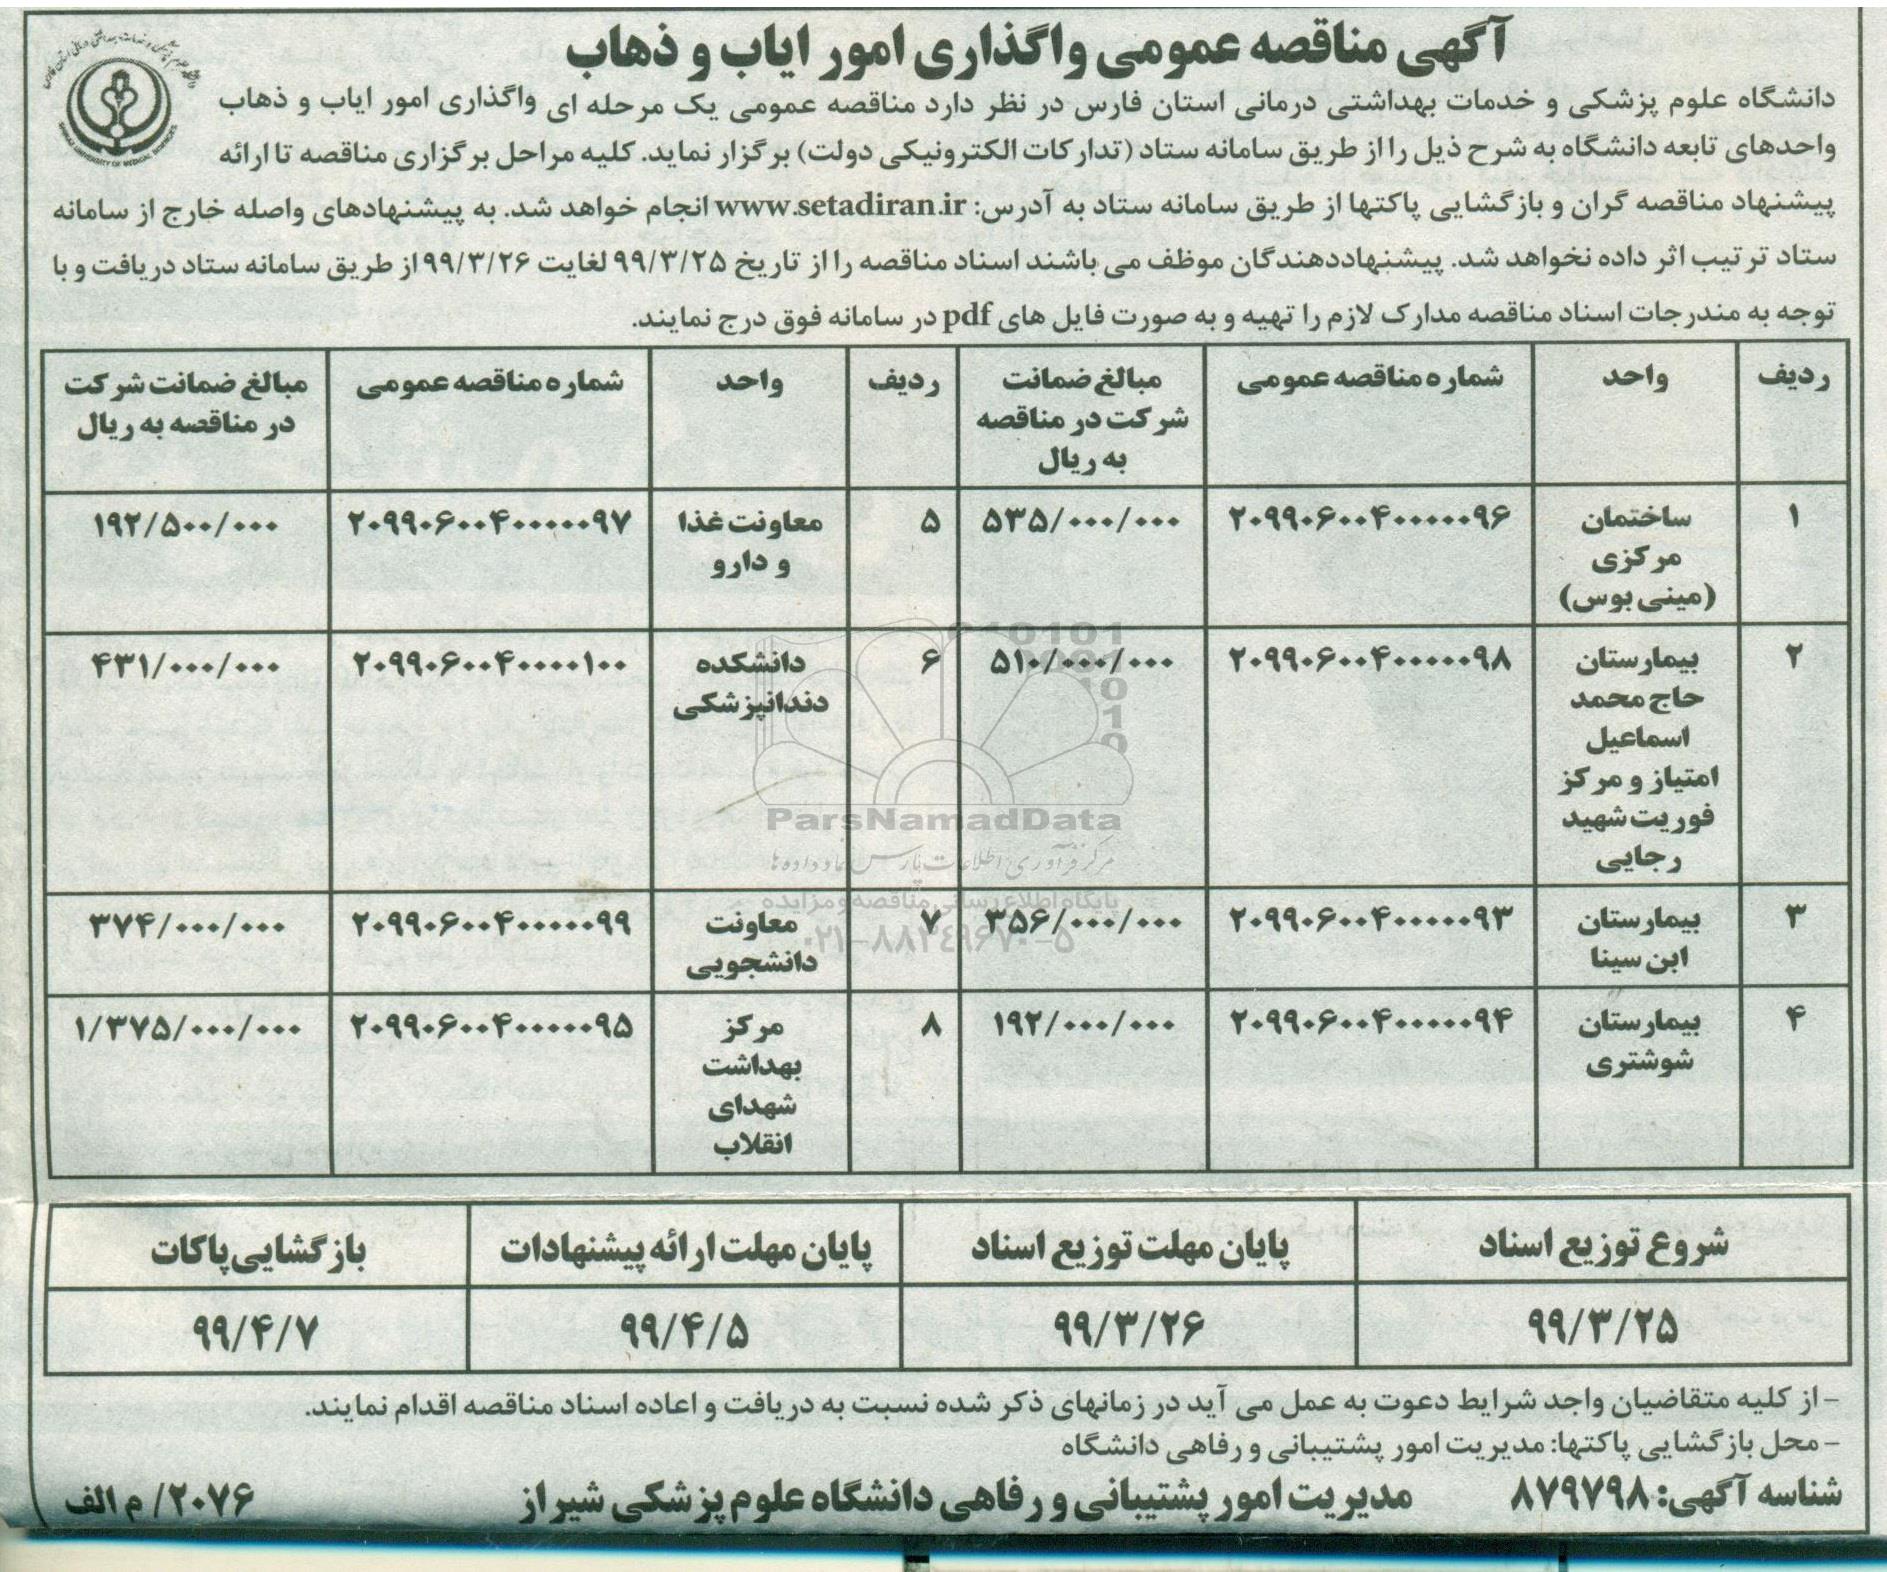 آگهی مناقصه عمومی واگذاری امور ایاب و ذهاب
دانشگاه علوم پزشکی و خدمات بهداشتی درمانی استان فارس در نظر دارد مناقصه عمومی یک مرحله ای واگذاری امور ایاب و ذهاب
واحدهای تابعه دانشگاه به شرح ذیل را از طریق سامانه ستاد (تدارکات الکترونیکی دولت) برگزار نماید. کلیه مراحل برگزاری مناقصه تا ارائه
پیشنهاد مناقصه گران و بازگشایی پاکتها از طریق سامانه ستاد به آدرس: www.setadiran.ir انجام خواهد شد. به پیشنهادهای واصله خارج از سامانه
ستاد ترتیب اثر داده نخواهد شد. پیشنهاددهندگان موظف می باشند اسناد مناقصه را از تاریخ ۹۹/۳/۲۵ لغایت ۹۹/۳/۲۶ از طریق سامانه ستاد دریافت و با
توجه به مندرجات اسناد مناقصه مدارک لازم را تهیه و به صورت فایل های pdf در سامانه فوق درج نمایند.
ردیف واحد شماره مناقصه عمومی مبالغ ضمانت شرکت در مناقصه به ریال ردیف واحد شماره مناقصه عمومی مبالغ ضمانت شرکت در مناقصه به ریال
۱ ساختمان مرکزی (مینی بوس) ۲۰۹۹۰۶۰۰۴۰۰۰۰۰۹۶ ۵۳۵/۰۰۰/۰۰۰ ۵ معاونت غذا و دارو ۲۰۹۹۰۶۰۰۴۰۰۰۰۰۹۷ ۱۹۲/۵۰۰/۰۰۰
۲ بیمارستان حاج محمد اسماعیل امتیاز و مرکز فوریت شهید رجایی ۲۰۹۹۰۶۰۰۴۰۰۰۰۰۹۸ ۵۱۰/۰۰۰/۰۰۰ ۶ دانشکده دندانپزشکی ۲۰۹۹۰۶۰۰۴۰۰۰۰۱۰۰ ۴۳۱/۰۰۰/۰۰۰
۳ بیمارستان ابن سینا ۲۰۹۹۰۶۰۰۴۰۰۰۰۰۹۳ ۳۵۶/۰۰۰/۰۰۰ ۷ معاونت دانشجویی ۲۰۹۹۰۶۰۰۴۰۰۰۰۰۹۹ ۳۷۴/۰۰۰/۰۰۰
۴ بیمارستان شوشتری ۲۰۹۹۰۶۰۰۴۰۰۰۰۰۹۴ ۱۹۲/۰۰۰/۰۰۰ ۸ مرکز بهداشت شهدای انقلاب ۲۰۹۹۰۶۰۰۴۰۰۰۰۰۹۵ ۱/۳۷۵/۰۰۰/۰۰۰
ParsNamadData
مرکز فرآوری اطلاعات پارس نماد داده ها
پایگاه اطلاع رسانی مناقصه و مزایده
۰۲۱-۸۸۳۴۹۶۷۰-۵
شروع توزیع اسناد پایان مهلت توزیع اسناد پایان مهلت ارائه پیشنهادات بازگشایی پاکات
۹۹/۳/۲۵ ۹۹/۳/۲۶ ۹۹/۴/۵ ۹۹/۴/۷
- از کلیه متقاضیان واجد شرایط دعوت به عمل می آید در زمانهای ذکر شده نسبت به دریافت و اعاده اسناد مناقصه اقدام نمایند.
- محل بازگشایی پاکتها: مدیریت امور پشتیبانی و رفاهی دانشگاه
شناسه آگهی: ۸۷۹۷۹۸ مدیریت امور پشتیبانی و رفاهی دانشگاه علوم پزشکی شیراز ۲۰۷۶/ م الف